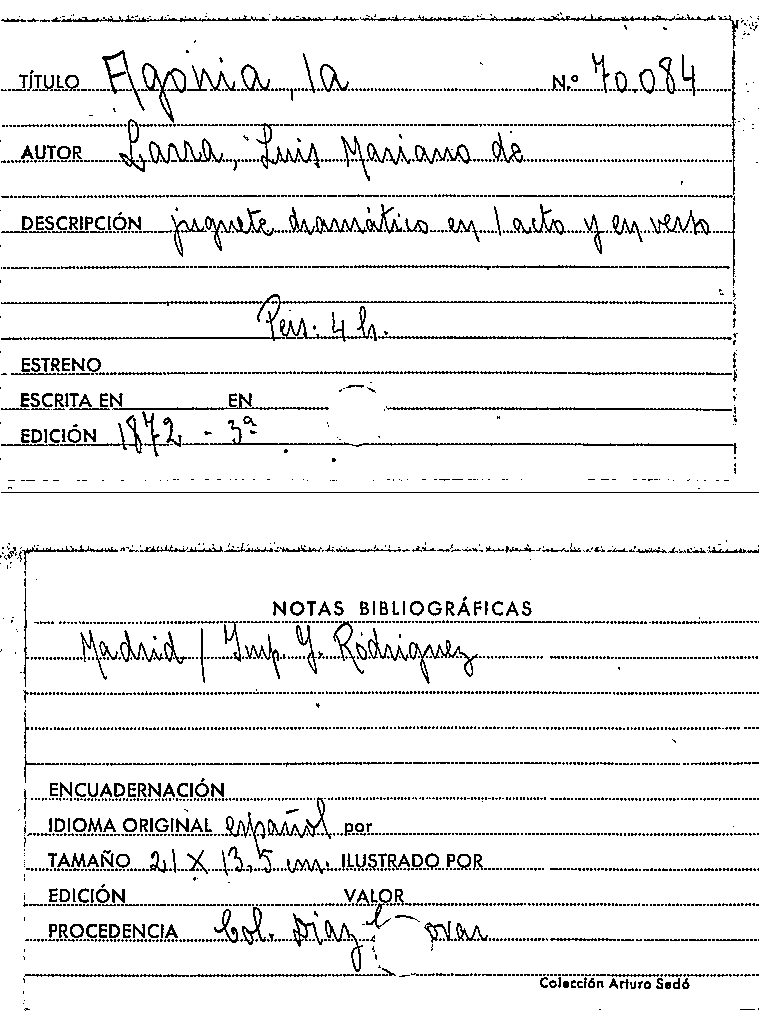 TÍTULO Agonia, la N.º 70.084
AUTOR Larra, Luis Mariano de
DESCRIPCIÓN juguete dramático en 1 acto y en verso
Pers. 4 h.
ESTRENO
ESCRITA EN EN
EDICIÓN 1872 - 3ª
NOTAS BIBLIOGRÁFICAS
Madrid / Imp. J. Rodriguez
ENCUADERNACIÓN
IDIOMA ORIGINAL español por
TAMAÑO 21 X 13,5 cm. ILUSTRADO POR
EDICIÓN VALOR
PROCEDENCIA Col. Díaz
Colección Arturo Sedó